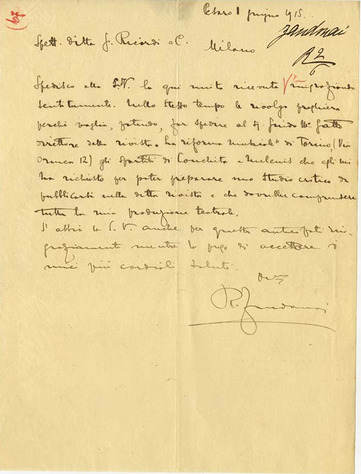 Pesaro 1 giugno 1915.
Zandonai
Spett. ditta G. Ricordi e C. Milano
R 2/6
Spedisco alla S.V. la qui unita ricevuta ringraziando
sentitamente. Nello stesso tempo le rivolgo preghiera
perchè voglia, potendo, far spedire al Sig. Guido M. Gatti
direttore della rivista "La riforma musicale" di Torino (Via
Ormea 12) gli spartiti di Conchita e Melenis che egli mi
ha richiesto per poter preparare uno studio critico da
pubblicarsi nella detta rivista e che dovrebbe comprendere
tutta la mia produzione teatrale.
S'abbia la S.V. anche per questo anticipati rin-
graziamenti mentre la prego di accettare i
miei più cordiali saluti.
Dev.mo
R. Zandonai